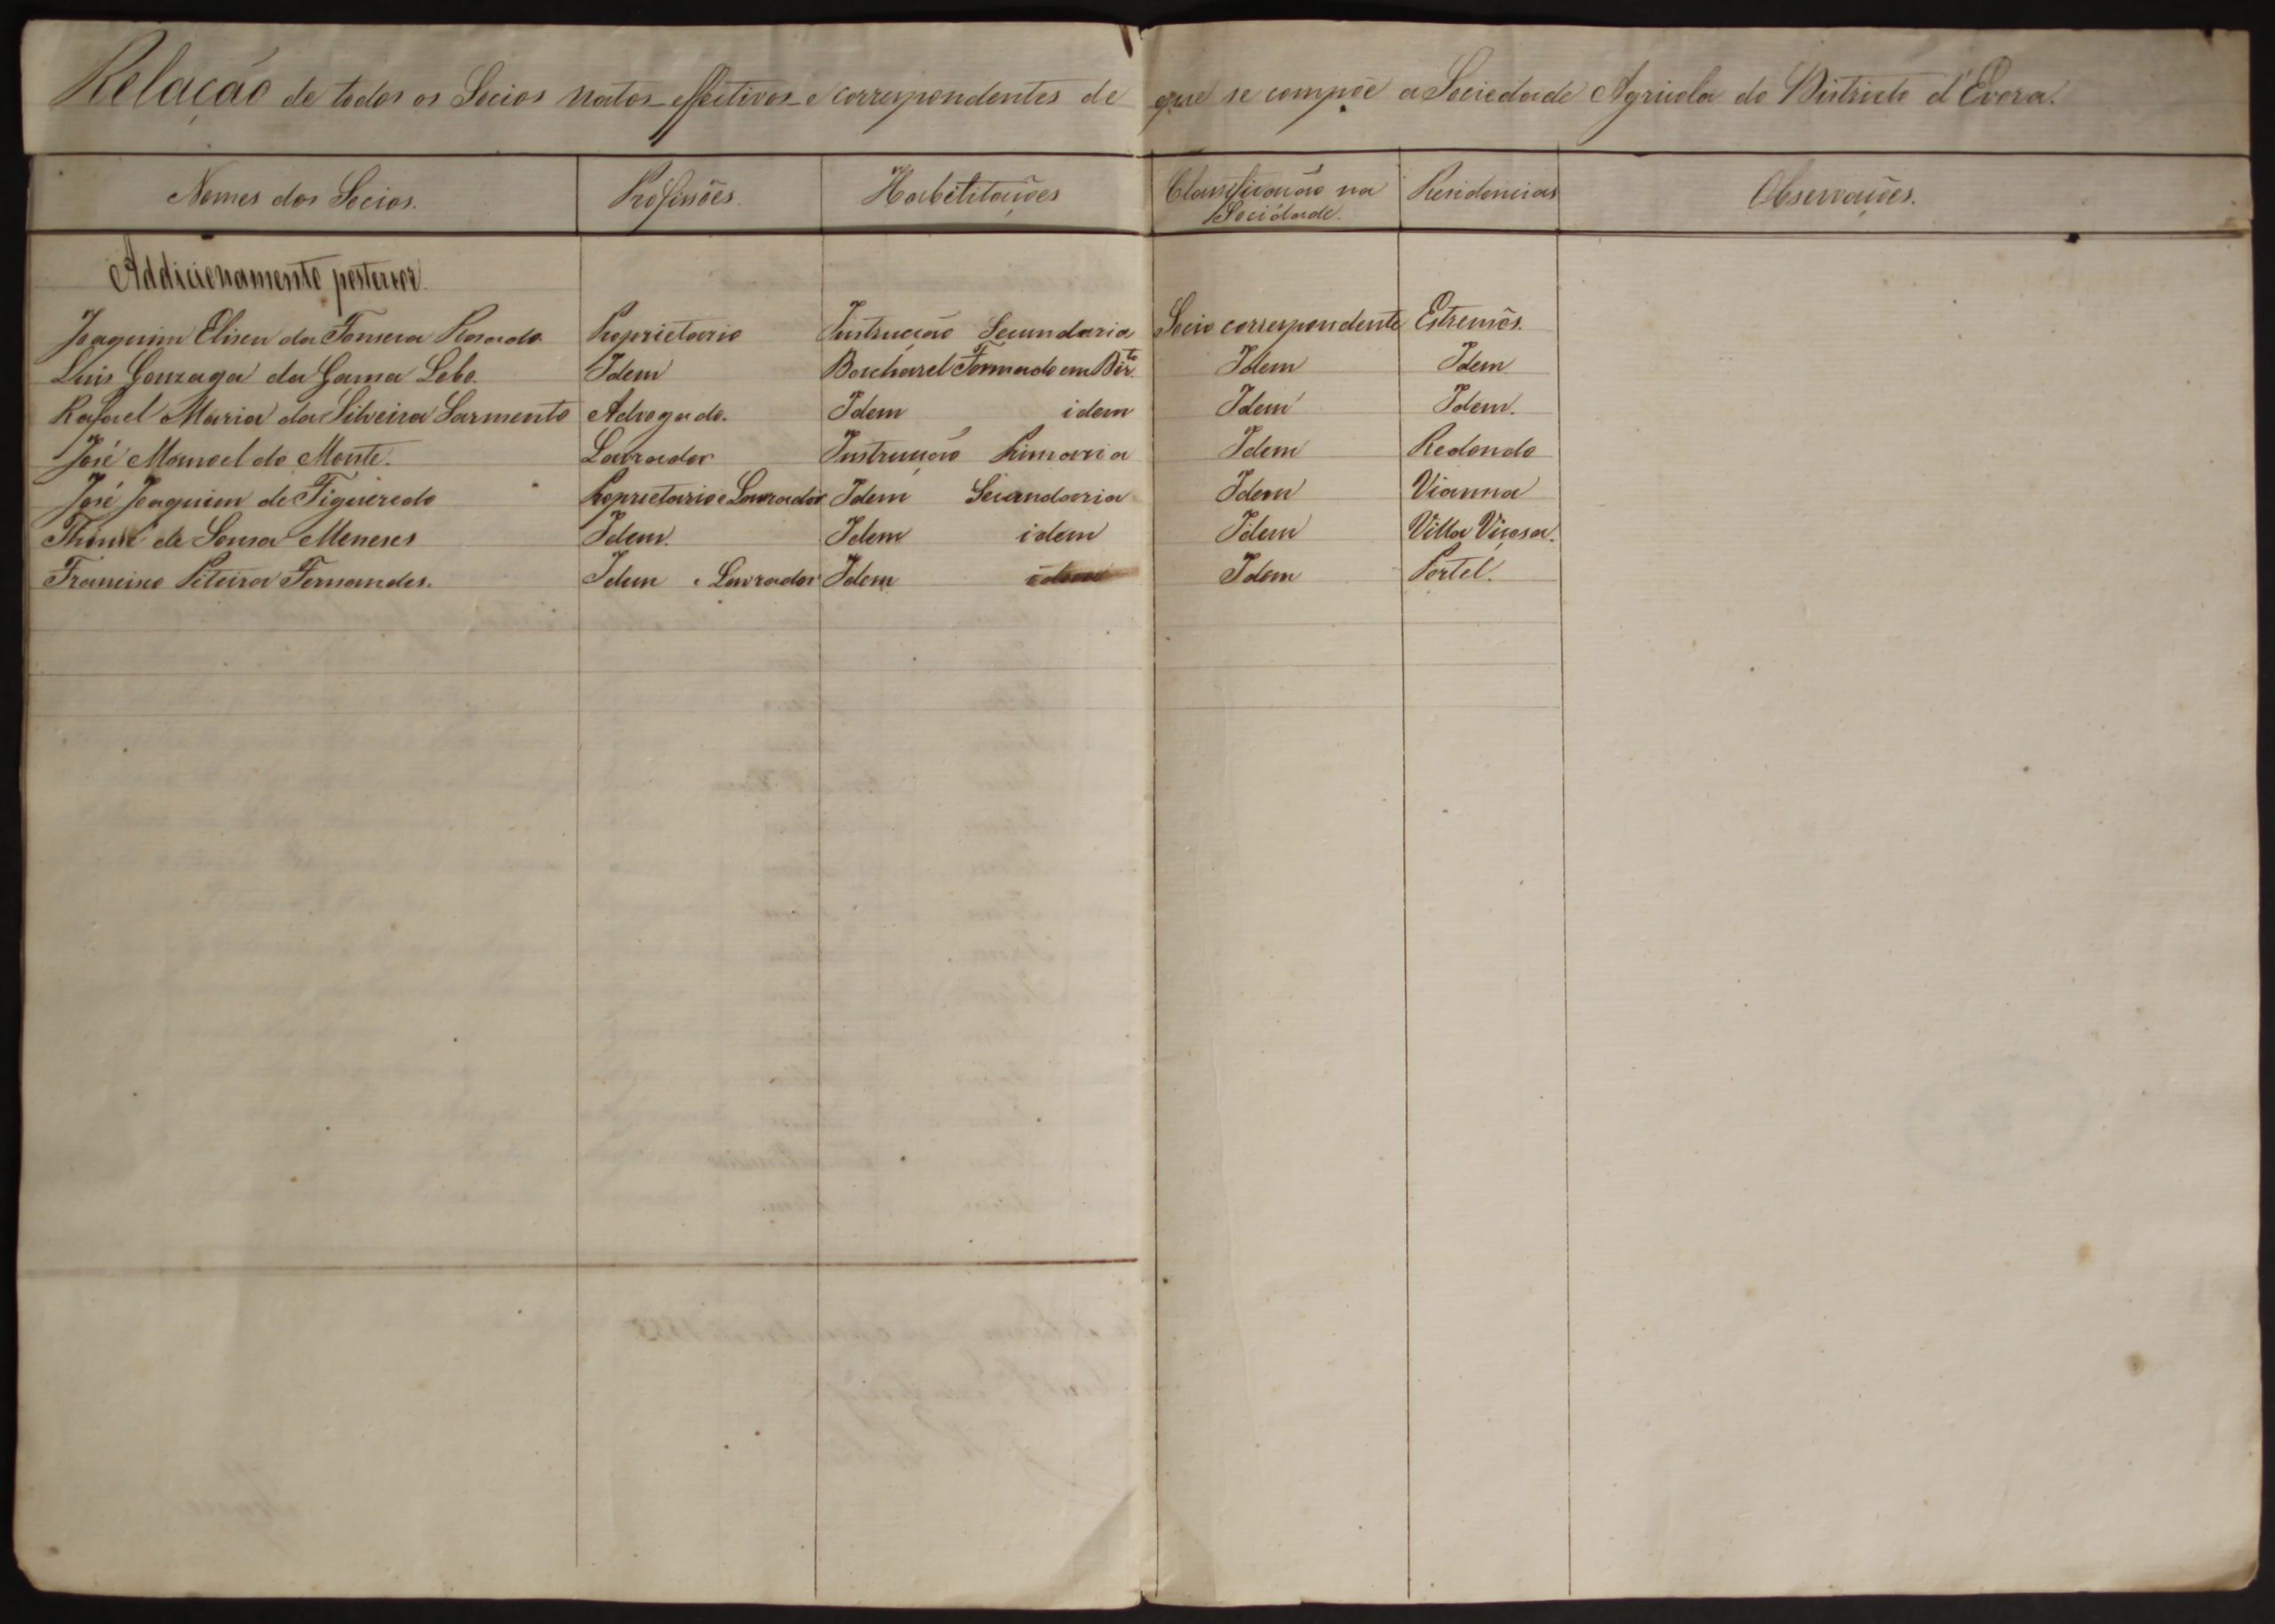 Relação de todos os Socios natos effectivos e correspondentes de que se compõe a Sociedade Agricola do Districto d'Evora.
Nomes dos Socios. Profissões. Habilitações Classificação na Sociedade. Residencias Observações.
Addicionamento posterior.
Joaquim Eliseu da Fonseca Rosado Proprietario Instrucção Secundaria Socio correspondente Estremôs.
Luis Gonzaga da Gama Lobo. Idem Bacharel Formado em Dir.to Idem Idem
Rafael Maria da Silveira Sarmento Advogado. Idem idem Idem Idem.
José Manoel do Monte. Lavrador Instrucção Primaria Idem Redondo
José Joaquim de Figueredo Proprietario e Lavrador Idem Secundaria Idem Vianna
Thomé de Sousa Meneses Idem. Idem idem Idem Villa Viçosa.
Francisco Piteira Fernandes. Idem e Lavrador Idem idem Idem Portel.